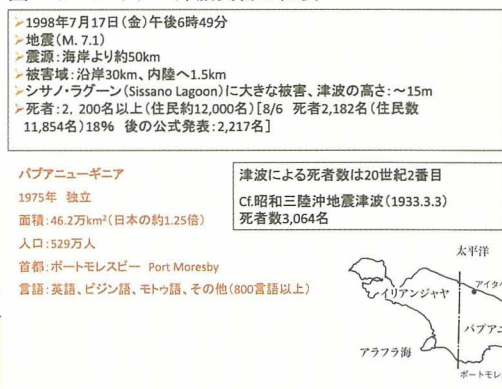 ➢1998年7月17日(金)午後6時49分
➢地震(M. 7.1)
➢震源:海岸より約50km
➢被害域:沿岸30km、内陸へ1.5km
➢シサノ・ラグーン(Sissano Lagoon)に大きな被害、津波の高さ:~15m
➢死者:2, 200名以上(住民約12,000名)[8/6 死者2,182名(住民数
11,854名)18% 後の公式発表:2,217名]
パプアニューギニア
1975年 独立
面積:46.2万km²(日本の約1.25倍)
人口:529万人
首都:ポートモレスビー Port Moresby
言語:英語、ピジン語、モトゥ語、その他(800言語以上)
津波による死者数は20世紀2番目
Cf.昭和三陸沖地震津波(1933.3.3)
死者数3,064名
太平洋
アイタ
イリアンジャヤ
パプアニ
アラフラ海
ポートモレ